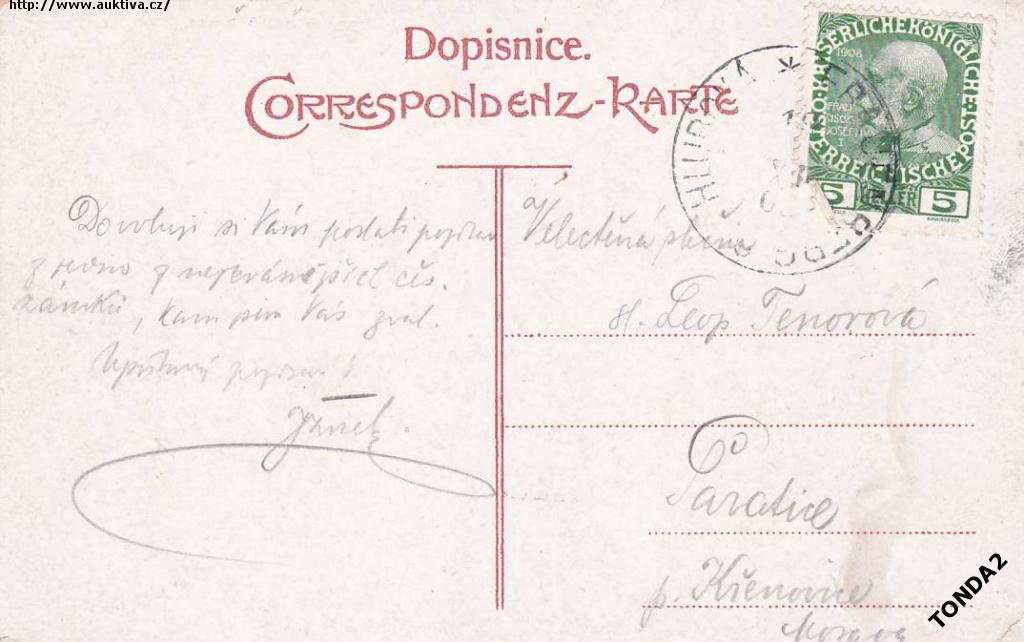 http://www.auktiva.cz/
Dopisnice.
CORRESPONDENZ-KARTE
KAISERLICHEKÖNIGLICHE
1908
FRANZ
JOSEF
I
ÖSTERREICHISCHE POST
5 HELLER 5
HLUBOKÁ
Dovoluji si Vám poslati pozdrav
z jedno z
zámků, kam pím Vás zval.
Upřímný pozdrav!
Velectěná slečna
sl. Leop Tenorová
Paratice
p. Křenovice
Morava
TONDA2